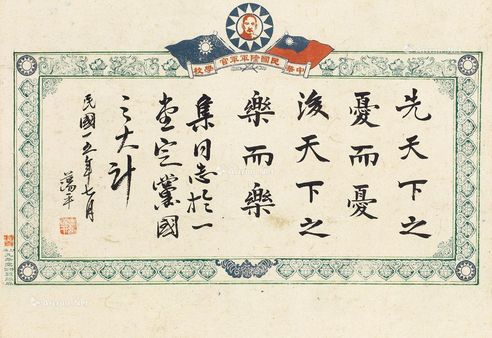 中華民國陸軍軍官學校
先天下之
憂而憂
後天下之
樂而樂
集同志於一
堂定黨國
之大計
民國一五年七月